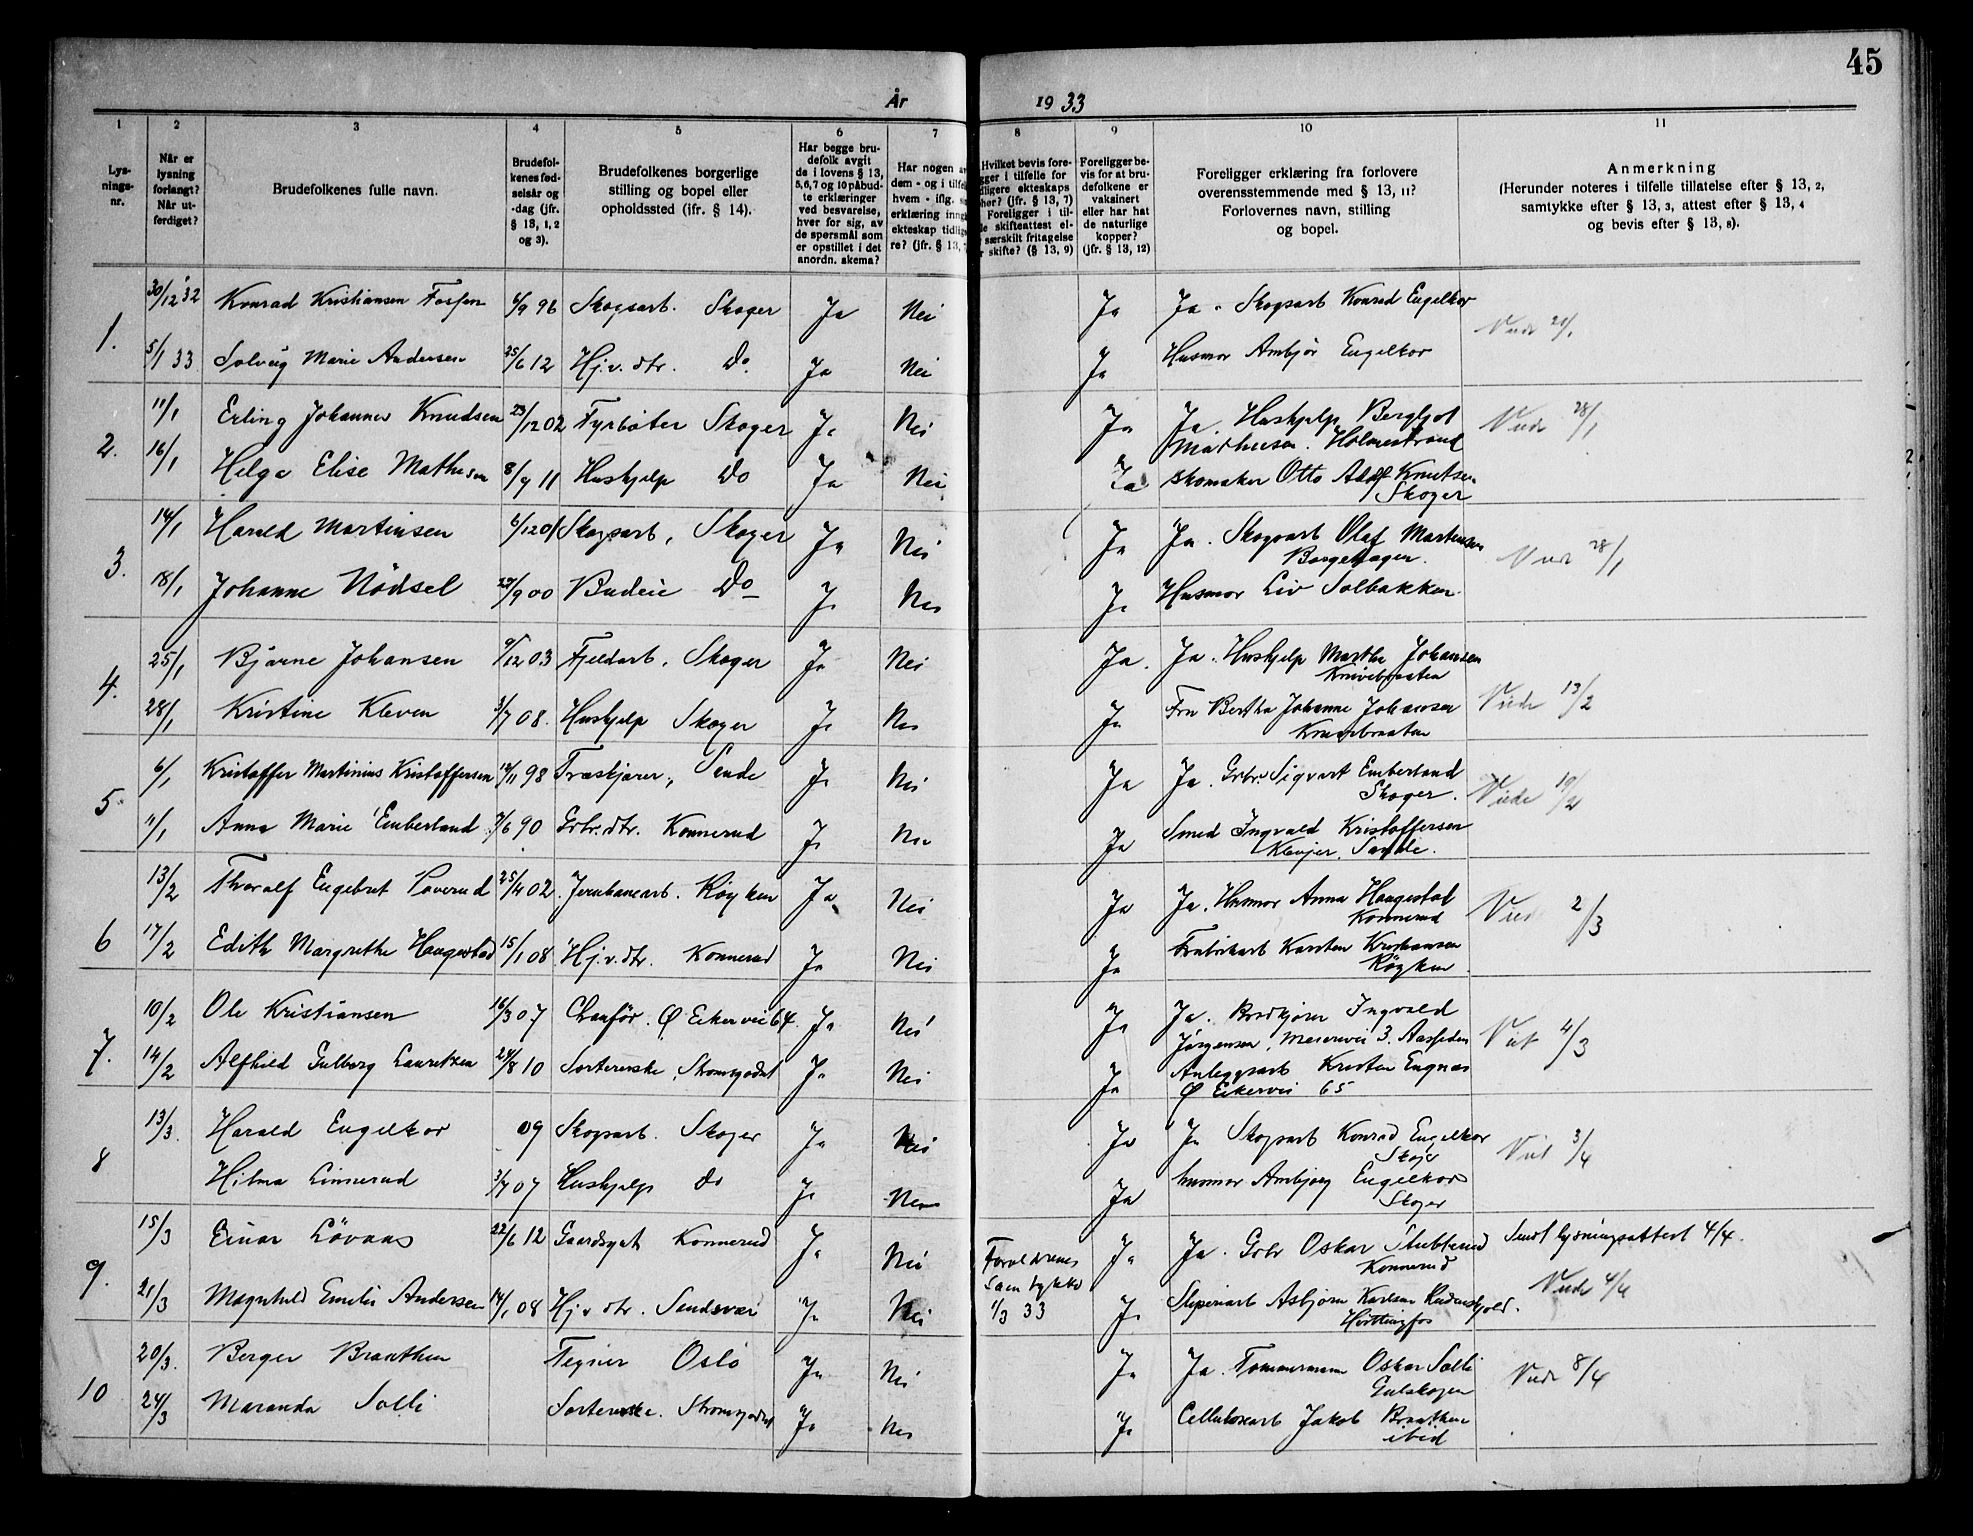 45
År 1933
1 2 3 4 5 6 7 8 9 10 11
Lys-
nings-
nr.
Når er
lysning
forlangt?
Når ut-
ferdiget?
Brudefolkenes fulle navn.
Brudefol-
kenes fød-
selsår og
-dag (jfr.
§ 13, 1, 2
og 3).
Brudefolkenes borgerlige
stilling og bopel eller
opholdssted (ifr. § 14).
Har begge bru-
defolk avgit
de i lovens § 13,
5,6,7 og 10 påbud-
te erklæringer
ved besvarelse,
hver for sig, av
de spørsmål som
er opstillet i det
anordn. skema?
Har nogen av
dem - og i tilfel
hvem - iflg. s
erklæring inng
ekteskap tidlig
re? (jfr. § 13, 7
Hvilket bevis fore-
gger i tilfelle for
dligere ekteskaps
hør? (jfr. § 13, 7)
Foreligger i til-
le skifteattest el-
særskilt fritagelse
r skifte? (§ 13, 9)
Foreligger be-
vis for at bru-
defolkene er
vaksinert
eller har hat
de naturlige
kopper?
(jfr. § 13, 12)
Foreligger erklæring fra forlovere
overensstemmende med § 13, 11?
Forlovernes navn, stilling
og bopel.
Anmerkning
(Herunder noteres i tilfelle tillatelse efter § 13, 2,
samtykke efter § 13, 3, attest efter § 13, 4
og bevis efter § 13, 8).
1. 30/12 32 Konrad Kristiansen Fossen 6/9 96 Skogsarb. Skoger Ja Nei Ja Ja. Skogsarb Konrad Engelkor
Viede 21/1
5/1 33 Solveig Marie Andersen 25/6 12 Hj.v. dtr. Do Ja Nei Ja Husmor Ambjør Engelkor
2. 11/1 Erling Johannes Knudsen 23/12 02 Fyrbøter Skoger Ja Nei Ja Ja Hushjelp Bergljot
Mathiesen. Holmestrand
Viede 28/1
16/1 Helga Elise Mathisen 8/9 11 Hushjelp Do Ja Nei Ja skomaker Otto Adolf Knutsen
Skoger
3. 14/1 Harald Martinsen 6/12 01 Skogsarb, Skoger Ja Nei Ja Ja. Skogsarb Olaf Martinsen
Borgehagen.
Vied 28/1
18/1 Johanne Nödsel 29/9 00 Budeie Do Ja Nei Ja Husmor Liv Solbakken.
4. 25/1 Bjarne Johansen 9/12 03 Fjeldarb, Skoger Ja Nei Ja. Ja. Hushjelp Martha Johansen
Knivebraaten
28/1 Kristine Kleven 3/7 08. Hushjelp Skoger Ja Nei Ja Fru Bertha Johanne Johansen
Knivebraaten
Viede 13/2
5 6/1 Kristoffer Martinius Kristoffersen 12/11 98 Træskjærer, Sande Ja Nei Ja Ja. Grbr. Sigvart Emberland
Skoger.
Viede 19/2
11/1 Anna Marie Emberland 7/6 90 Grbr.dtr. Konnerud Ja Nei Ja Smed Ingvald Kristoffersen
Klevjer, Sande.
6 13/2 Thoralf Engebret Loverud 25/4 02. Jernbanearb. Røyken Ja Nei Ja Ja. Husmor Anna Haugestad
Konnerud
Vied 2/3
17/2 Edith Margrethe Haugestad 15/1 08 Hj.v.dtr. Konnerud Ja Nei Ja Fabrikarb Karsten Kristiansen
Røyken
7. 10/2 Ole Kristiansen 16/3 07 Chauför. Ø Eikervei 64. Ja Nei Ja Ja. Brødkjører Ingvald
Jørgensen, Meierivei 3. Aassiden
Vied 4/3
14/2 Alfhild Gulborg Lauritzen 24/8 10 Sortererske, Strømsgodset Ja Nei Ja Anleggsarb Kristen Engnæs
Ø Eikervei 65
8 13/3. Harald Engelkor 09 Skogsarb. Skoger Ja Nei Ja Ja Skogsarb Konrad Engelkor
Skoger
Vied 3/4
Hilma Linnerud 3/7 07 Hushjelp do Ja Nei Ja husmor Ambjørg Engelkor
Skoger
9. 15/3 Einar Lövaas 22/6 12 Gaardsgut Konnerud Ja Nei Forældrenes
Samtykke
1/3 33
Ja Ja. Grbr Oskar Stubberud
Konnerud
Sendt lysningsattest 4/4.
21/3 Magnhild Emilie Andersen 14/1 08 Hj.v dtr. Sandsvær Ja Nei Ja Sliperiarb Asbjørn Karlsen
Hvittingfos
Viede 4/4
10 20/3. Berger Braathen Tegner Oslo Ja Nei Ja Ja. Tømmermann Oskar Solli
Gulskogen
Viede 8/4
24/3 Maranda Solli Sortererske. Strømsgodset Ja Nei Ja Cellulosearb Jakob Braathen
ibid